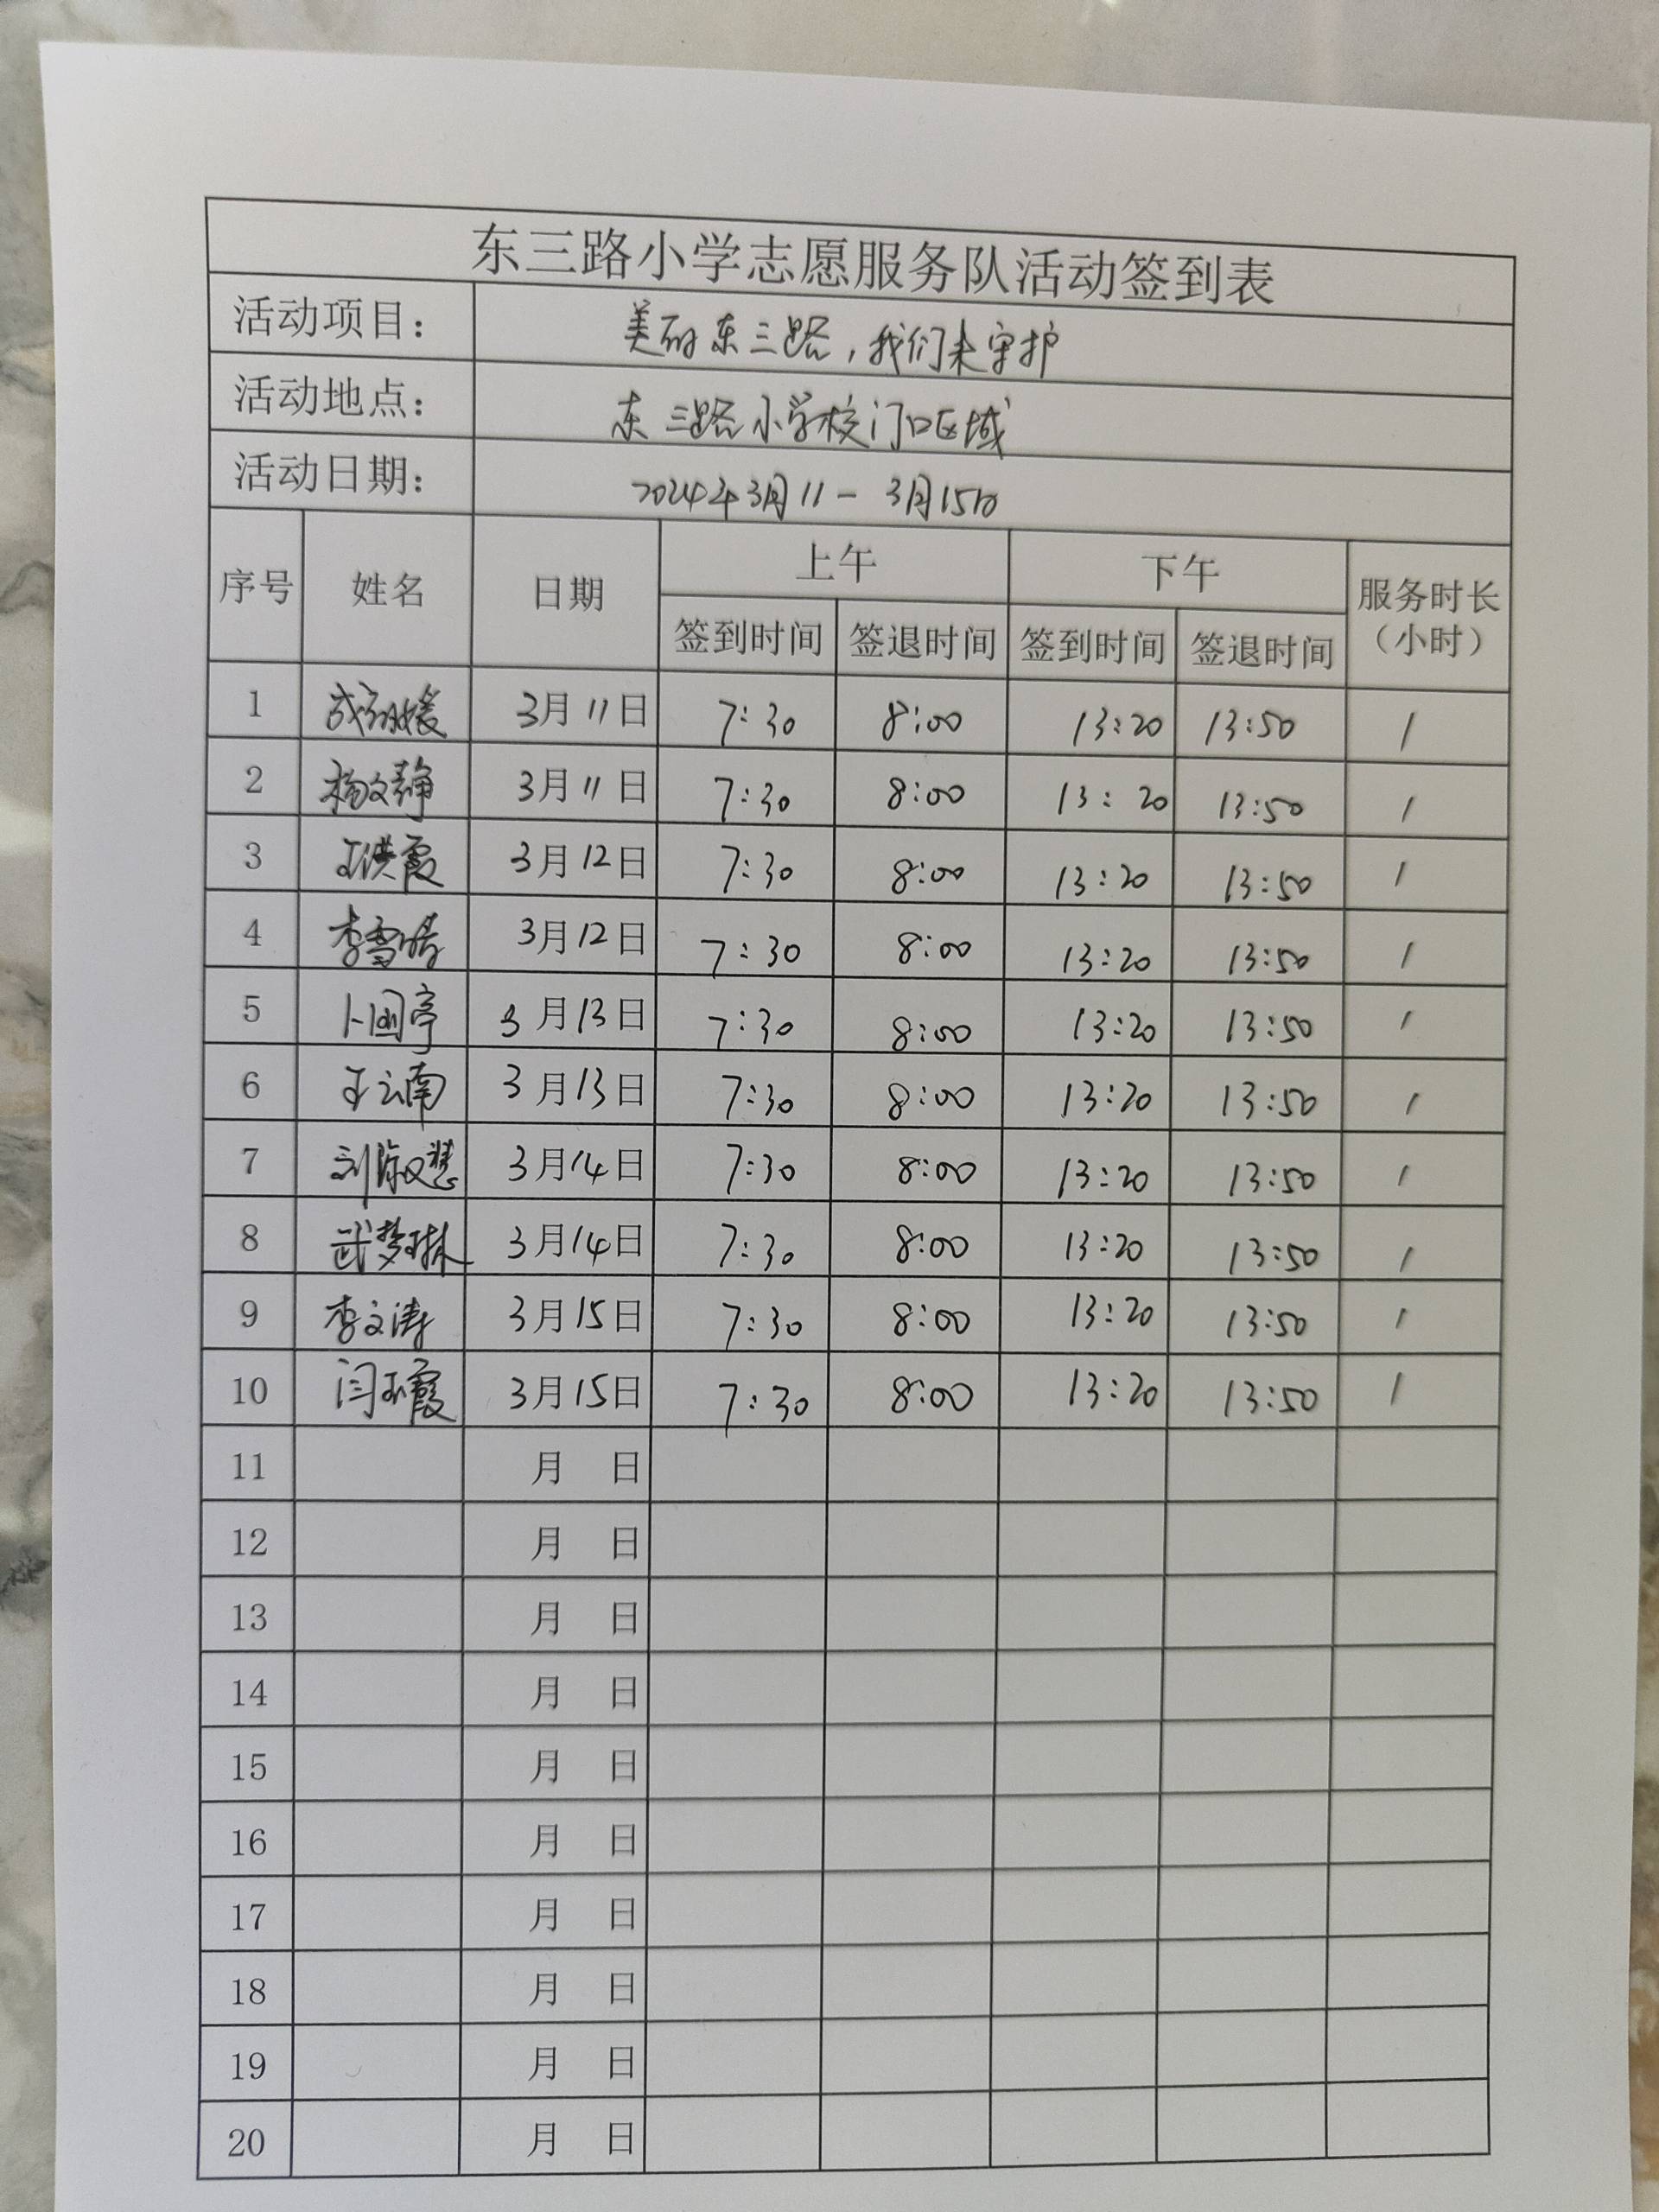 东三路小学志愿服务队活动签到表
活动项目： 美丽东三路，我们来守护
活动地点： 东三路小学校门口区域
活动日期： 2024年3月11-3月15日
序号 姓名 日期 上午 下午 服务时长（小时）
签到时间 签退时间 签到时间 签退时间
1 3月11日 7:30 8:00 13:20 13:50 1
2 杨文静 3月11日 7:30 8:00 13:20 13:50 1
3 王洪霞 3月12日 7:30 8:00 13:20 13:50 1
4 李雪晴 3月12日 7:30 8:00 13:20 13:50 1
5 3月13日 7:30 8:00 13:20 13:50 1
6 王云南 3月13日 7:30 8:00 13:20 13:50 1
7 3月14日 7:30 8:00 13:20 13:50 1
8 武梦琳 3月14日 7:30 8:00 13:20 13:50 1
9 李文涛 3月15日 7:30 8:00 13:20 13:50 1
10 闫玉霞 3月15日 7:30 8:00 13:20 13:50 1
11 月 日
12 月 日
13 月 日
14 月 日
15 月 日
16 月 日
17 月 日
18 月 日
19 月 日
20 月 日